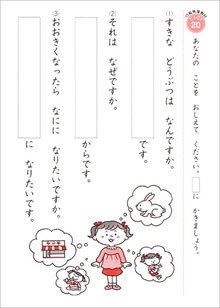 20
あなたの ことを おしえて ください。□に かきましょう。
① すきな どうぶつは なんですか。
です。
② それは なぜですか。
からです。
③ おおきく なったら なにに なりたいですか。
に なりたいです。